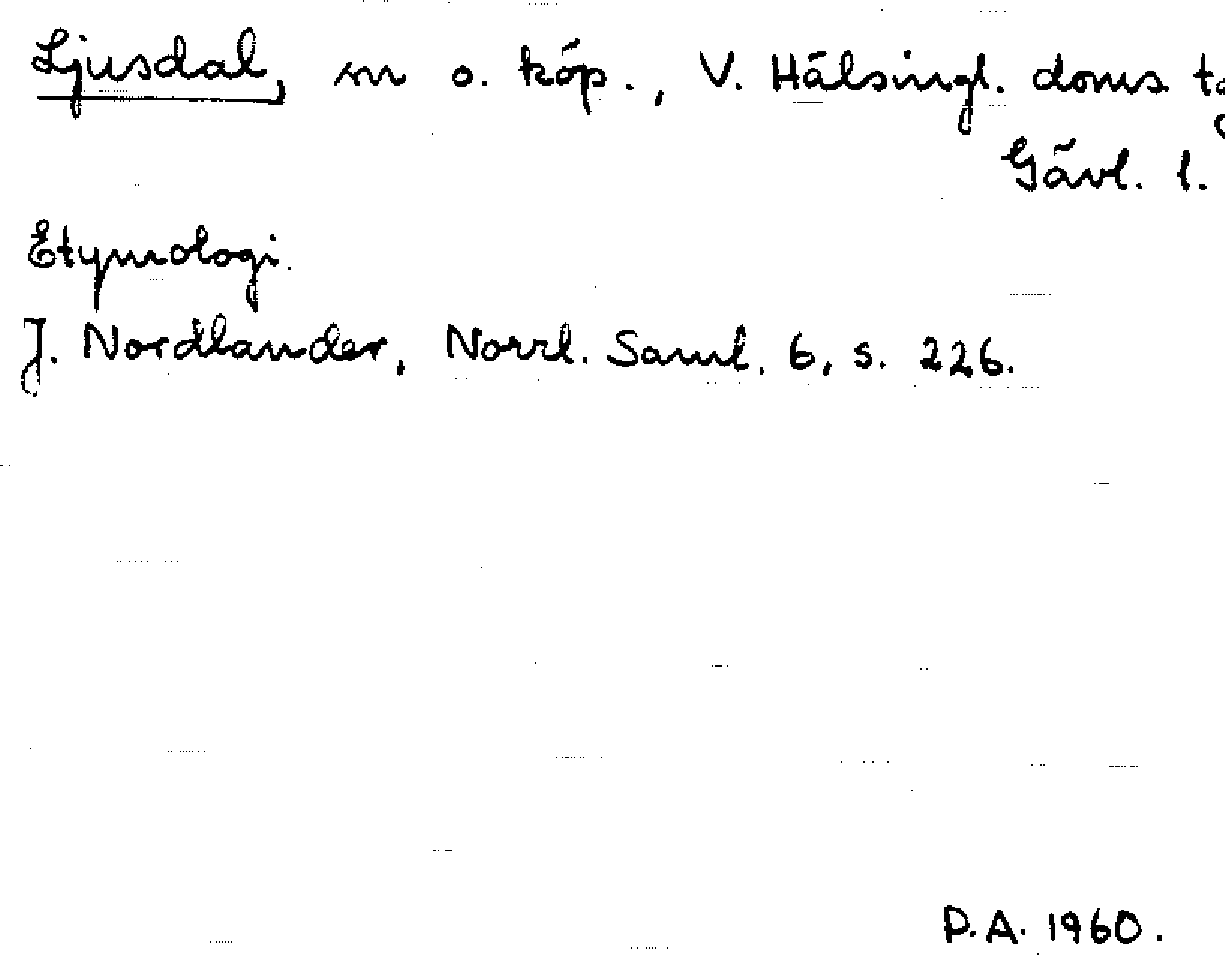 Ljusdal, sn o. köp., V. Hälsingl. doms
Gävl. l.
Etymologi.
J. Nordlander, Norrl. Saml. 6, s. 226.
P.A. 1960.